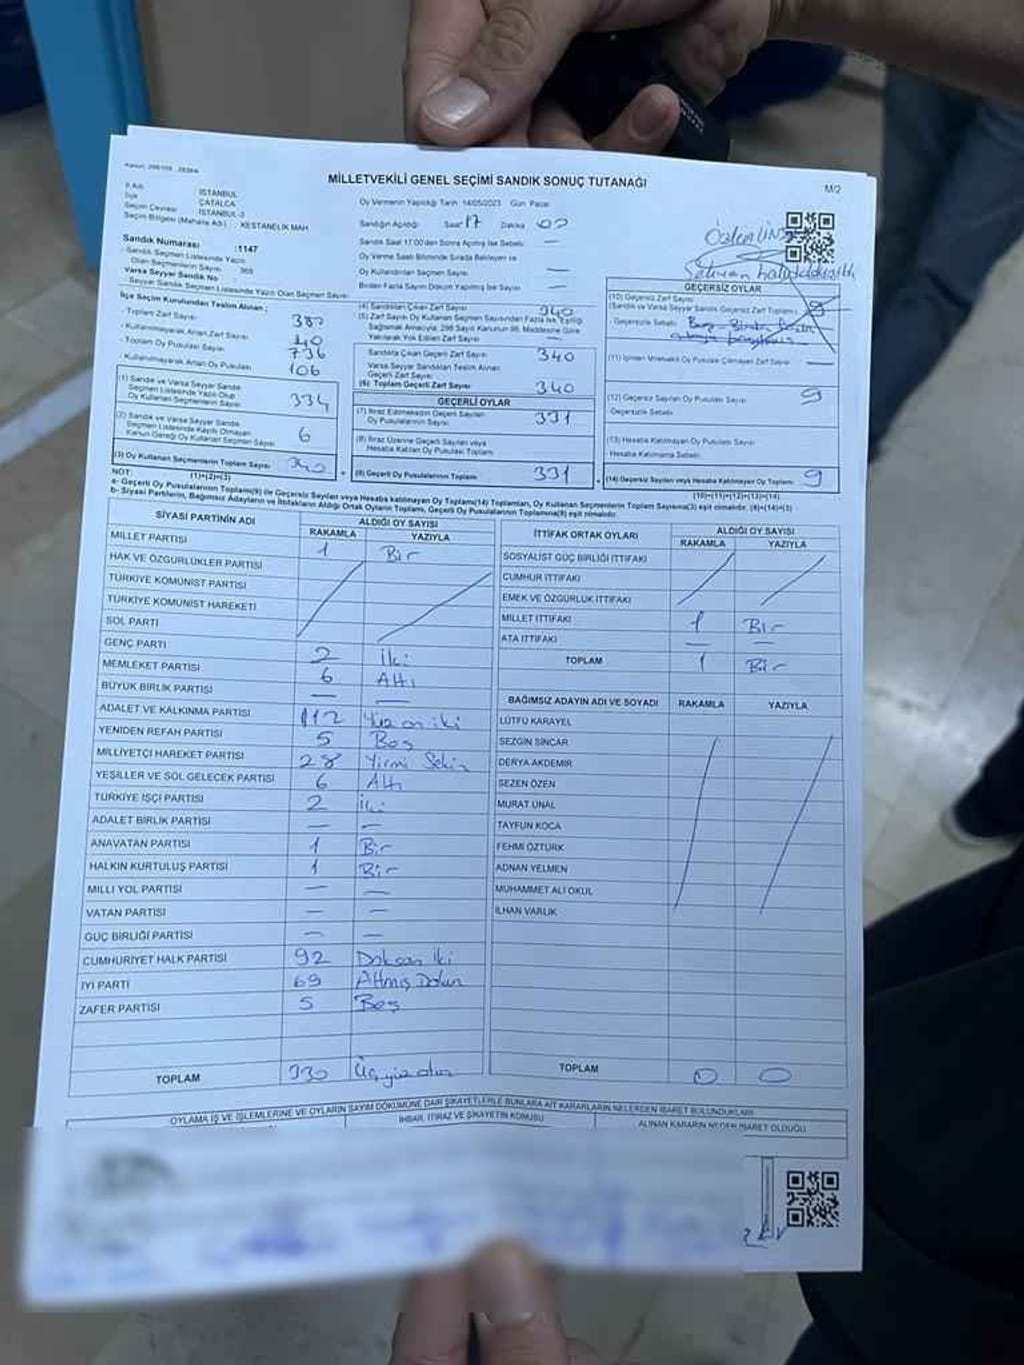 MİLLETVEKİLİ GENEL SEÇİMİ SANDIK SONUÇ TUTANAĞI
M/2
İl Adı : İSTANBUL
İlçe : ÇATALCA
Seçim Çevresi : İSTANBUL-3
Seçim Bölgesi (Mahalle Adı) : KESTANELİK MAH
Sandık Numarası :1147
- Sandık Seçmen Listesinde Yazılı
Olan Seçmenlerin Sayısı : 369
Varsa Seyyar Sandık No
- Seyyar Sandık Seçmen Listesinde Yazılı Olan Seçmen Sayısı
Oy Vermenin Yapıldığı Tarih 14/05/2023 Gün Pazar
Sandığın Açıldığı Saat 17 Dakika 00
Sandık Saat 17.00'den Sonra Açılmış İse Sebebi —
Oy Verme Saati Bitiminde Sırada Bekleyen ve
Oy Kullandırılan Seçmen Sayısı —
Birden Fazla Sayım Dökümü Yapılmış İse Sayısı —
Özlem
İlçe Seçim Kurulundan Teslim Alınan ;
- Toplam Zarf Sayısı 380
- Kullanılmayarak Artan Zarf Sayısı 40
- Toplam Oy Pusulası Sayısı 736
- Kullanılmayarak Artan Oy Pusulası 106
(1) Sandık ve Varsa Seyyar Sandık
Seçmen Listesinde Yazılı Olup
Oy Kullanan Seçmenlerin Sayısı 334
(2) Sandık ve Varsa Seyyar Sandık
Seçmen Listesinde Kayıtlı Olmayan
Kanun Gereği Oy Kullanan Seçmen Sayısı 6
(3) Oy Kullanan Seçmenlerin Toplam Sayısı 340
(1)+(2)=(3)
(4) Sandıktan Çıkan Zarf Sayısı 340
(5) Zarf Sayısı Oy Kullanan Seçmen Sayısından Fazla ise, Eşitliği
Sağlamak Amacıyla, 298 Sayılı Kanunun 98. Maddesine Göre
Yakılarak Yok Edilen Zarf Sayısı —
Sandıkta Çıkan Geçerli Zarf Sayısı 340
Varsa Seyyar Sandıktan Teslim Alınan
Geçerli Zarf Sayısı
(6) Toplam Geçerli Zarf Sayısı 340
GEÇERLİ OYLAR
(7) İtiraz Edilmeksizin Geçerli Sayılan
Oy Pusulalarının Sayısı 331
(8) İtiraz Üzerine Geçerli Sayılan veya
Hesaba Katılan Oy Pusulası Toplamı
(9) Geçerli Oy Pusulalarının Toplamı 331
GEÇERSİZ OYLAR
(10) Geçersiz Zarf Sayısı
(Sandık ve Varsa Seyyar Sandık Geçersiz Zarf Toplamı) 9
- Geçersizlik Sebebi
(11) İçinden Milletvekili Oy Pusulası Çıkmayan Zarf Sayısı —
(12) Geçersiz Sayılan Oy Pusulası Sayısı 9
Geçersizlik Sebebi
(13) Hesaba Katılmayan Oy Pusulası Sayısı
Hesaba Katılmama Sebebi
(14) Geçersiz Sayılan veya Hesaba Katılmayan Oy Toplamı 9
(10)+(11)+(12)+(13)=(14)
NOT:
a- Geçerli Oy Pusulalarının Toplamı(9) ile Geçersiz Sayılan veya Hesaba katılmayan Oy Toplamı(14) Toplamları, Oy Kullanan Seçmenlerin Toplam Sayısına(3) eşit olmalıdır. (9)+(14)=(3)
b- Siyasi Partilerin, Bağımsız Adayların ve İttifakların Aldığı Ortak Oyların Toplamı, Geçerli Oy Pusulalarının Toplamına(9) eşit olmalıdır.
SİYASİ PARTİNİN ADI ALDIĞI OY SAYISI
RAKAMLA YAZIYLA
MİLLET PARTİSİ 1 Bir
HAK VE ÖZGÜRLÜKLER PARTİSİ
TÜRKİYE KOMÜNİST PARTİSİ
TÜRKİYE KOMÜNİST HAREKETİ
SOL PARTİ
GENÇ PARTİ 2 İki
MEMLEKET PARTİSİ 6 Altı
BÜYÜK BİRLİK PARTİSİ — —
ADALET VE KALKINMA PARTİSİ 112 Yüz on iki
YENİDEN REFAH PARTİSİ 5 Beş
MİLLİYETÇİ HAREKET PARTİSİ 28 Yirmi Sekiz
YEŞİLLER VE SOL GELECEK PARTİSİ 6 Altı
TÜRKİYE İŞÇİ PARTİSİ 2 İki
ADALET BİRLİK PARTİSİ — —
ANAVATAN PARTİSİ 1 Bir
HALKIN KURTULUŞ PARTİSİ 1 Bir
MİLLİ YOL PARTİSİ — —
VATAN PARTİSİ — —
GÜÇ BİRLİĞİ PARTİSİ — —
CUMHURİYET HALK PARTİSİ 92 Doksan İki
İYİ PARTİ 69 Altmış Dokuz
ZAFER PARTİSİ 5 Beş
TOPLAM 330 Üçyüz otuz
İTTİFAK ORTAK OYLARI ALDIĞI OY SAYISI
RAKAMLA YAZIYLA
SOSYALİST GÜÇ BİRLİĞİ İTTİFAKI
CUMHUR İTTİFAKI
EMEK VE ÖZGÜRLÜK İTTİFAKI
MİLLET İTTİFAKI 1 Bir
ATA İTTİFAKI — —
TOPLAM 1 Bir
BAĞIMSIZ ADAYIN ADI VE SOYADI RAKAMLA YAZIYLA
LÜTFÜ KARAYEL
SEZGİN SİNCAR
DERYA AKDEMİR
SEZEN ÖZEN
MURAT ÜNAL
TAYFUN KOCA
FEHMİ ÖZTÜRK
ADNAN YELMEN
MUHAMMET ALİ OKUL
İLHAN VARLIK
TOPLAM 0 0
OYLAMA İŞ VE İŞLEMLERİNE VE OYLARIN SAYIM DÖKÜMÜNE DAİR ŞİKAYETLERLE BUNLARA AİT KARARLARIN NELERDEN İBARET BULUNDUKLARI
İHBAR, İTİRAZ VE ŞİKAYETİN KONUSU ALINAN KARARIN NEDEN İBARET OLDUĞU